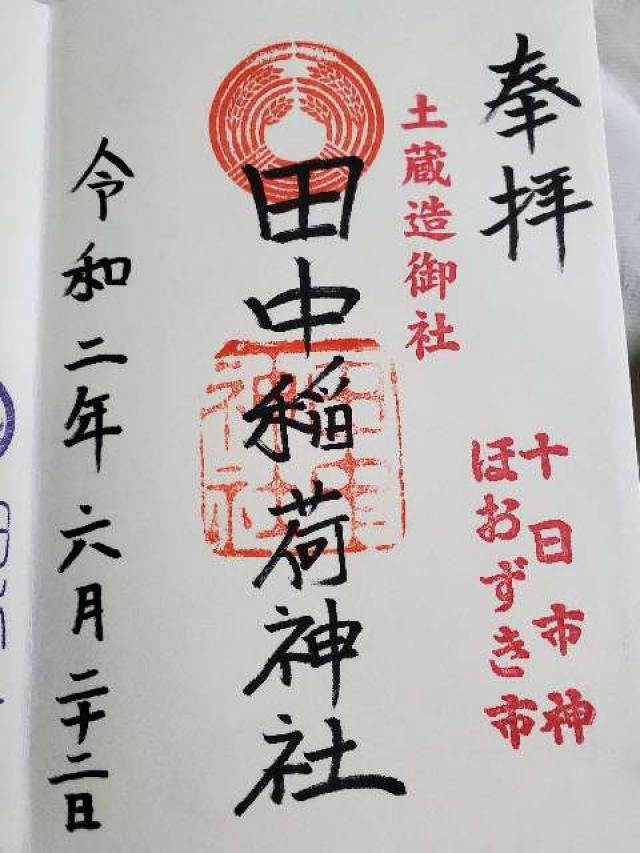 奉拝
土蔵造御社
十日市神
ほおずき市
田中稲荷神社
神社
令和二年六月二十二日